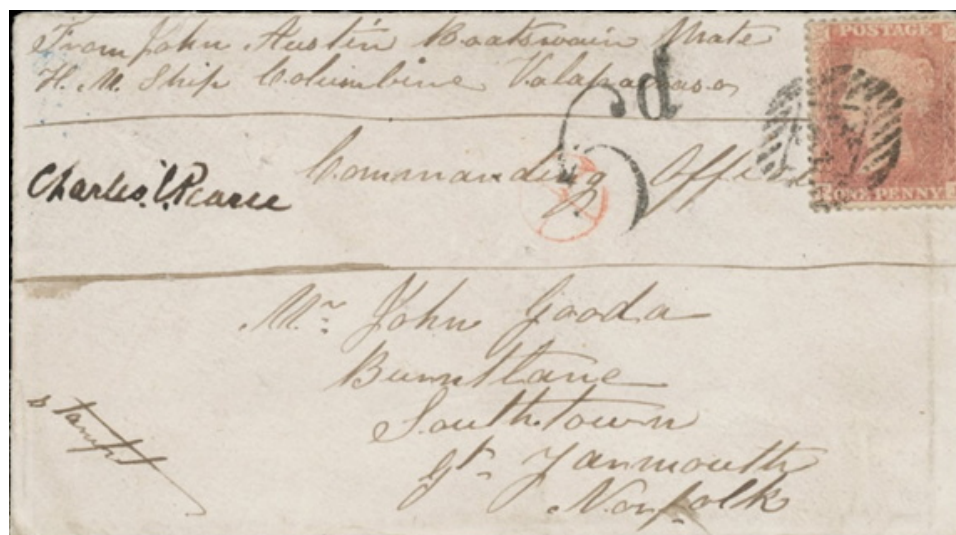 From John Austin Boatswain Mate
H. M. Ship Columbine Valaparaso
POSTAGE
6d
Charles Pearce
Commanding Offi
ONE PENNY
Mr John Gooda
Burnt lane
Southtown
Gt Yarmouth
Norfolk
stampt